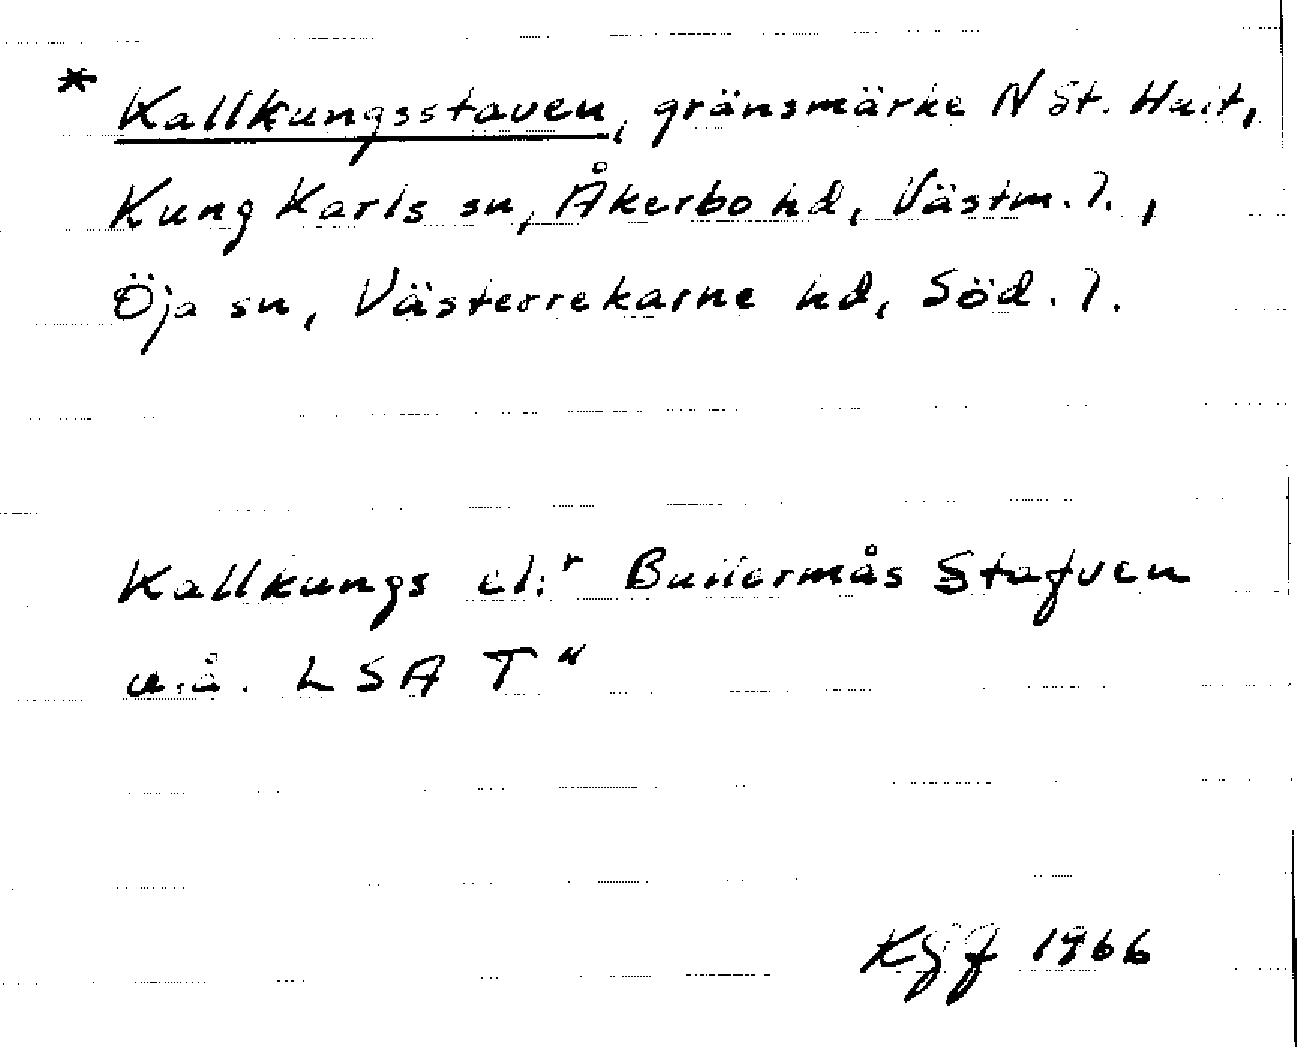 * Kallkungsstaven, gränsmärke N St. Hvit,
Kung Karls sn, Åkerbo hd, Västm. l.,
Öja sn, Västerrekarne hd, Söd. l.
Kallkungs el:r Bullermås Stafven
u.å. LSA T"
KGJ 1966